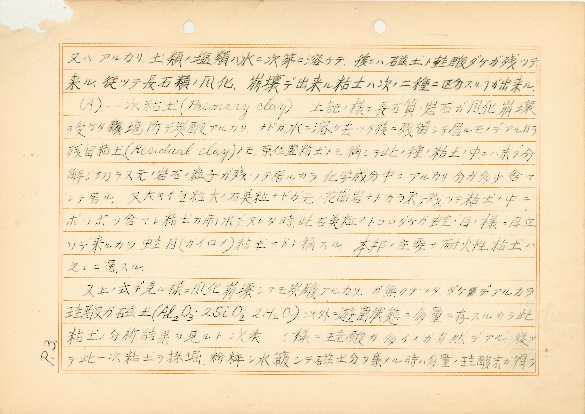 又ハ アルカリ 土類ノ塩類ハ水ニ次第ニ溶ケテ 後ニハ 磁土ト硅酸ダケガ残ッテ
来ル. 従ッテ長石類ノ風化、崩壊デ出来ル粘土ハ次ノ二種ニ区分スル事ガ出来ル.
(A) 一次粘土(Primary clay) 上記ノ様ニ長石質岩石ガ風化崩壊
ヲ受ケタ 場所デ炭酸アルカリ ナドガ水ニ溶ケ去ッタ後ニ残留シテ居ルモノデアルカラ
残留粘土(Residual clay)トモ 原位置粘土トモ称シテ此ノ種ノ粘土ノ中ニハ未ダ分
解シ切ラヌ元ノ岩石ノ粒子ガ残ッテ居ルカラ 化学成分中ニアルカリ分ガ多少含マ
レテ居ル. 又大キイ粒大ノ石英粒ナドガ元ノ花崗岩ナドカラ来テ残ッテ粘土ノ中ニ
ポツポツ含マレ粘土ガ雨水デヌレタ時此石英粒ノトコロダケガ蛙ノ目ノ様ニ目立
ッテ来ルカラ 蛙目(ガイロメ)粘土ナドト称スル 本邦ノ主要ナ耐火性粘土ハ
之レニ属スル.
又上ノ式デ見ル様ニ風化崩壊シテモ炭酸アルカリ ガ無クナッタ ダケデアルカラ
珪酸ガ磁土(Al₂O₃ 2SiO₂ 2H₂O)以外ニ 状態ニ多量ニ存スルカラ此
粘土ノ分析結果ヲ見ルト次表 ノ様ニ珪酸ガ多イノガ当然デアル. 従ッ
テ此一次粘土ヲ採掘、粉粹シ水簸シテ磁土分ヲ集メル時ハ多量ノ珪酸末ガ得ラ
P.3.